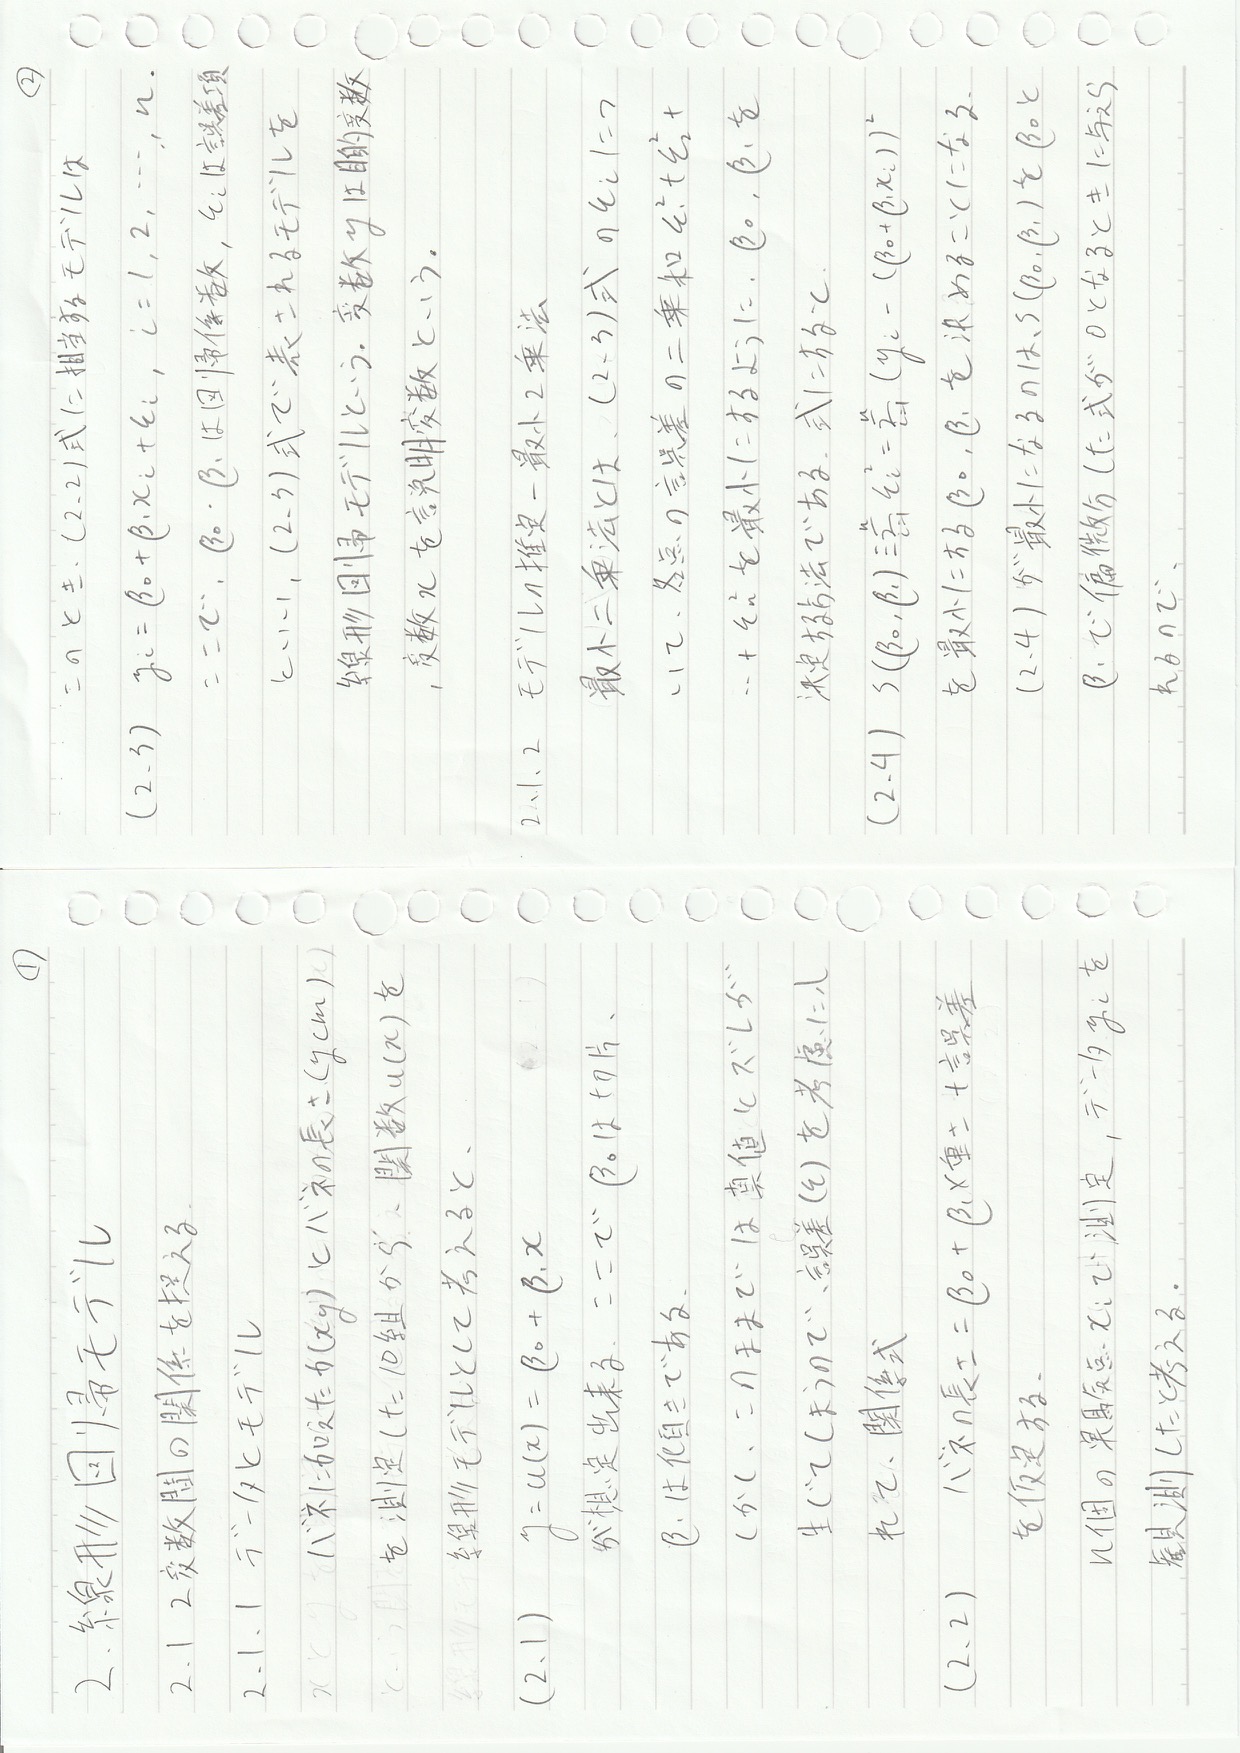 ①
2. 線形回帰モデル
2.1 2変数間の関係を捉える.
2.1.1 データとモデル
バネに加えた力(xg)とバネの長さ(ycm)
を測定した10組から、関数u(x)を
線形モデルとして考えると、
(2.1) y = u(x) = β₀ + β₁x
が想定出来る. ここでβ₀は切片、
β₁は傾きである.
しかし、このままでは真値とズレが
生じてしまうので、誤差(ε)を考慮に入
れて、関係式
(2.2) バネの長さ = β₀ + β₁×重さ + 誤差
を仮定する.
n個の実験点xᵢで測定, データyᵢを
観測したと考える.
②
このとき、(2.2)式に相当するモデルは
(2.3) yᵢ = β₀ + β₁xᵢ + εᵢ, i = 1, 2, …, n.
ここで、β₀・β₁は回帰係数, εᵢは誤差項
といい, (2.3)式で表されるモデルを
線形回帰モデルという。変数yは目的変数
, 変数xを説明変数という。
2.1.2 モデルの推定-最小2乗法
最小二乗法とは、(2.3)式のεᵢにつ
いて、各点の誤差の二乗和 ε₁² + ε₂² +
… + εₙ² を最小にするように、β₀, β₁を
決定する方法である. 式にすると.
(2.4) S(β₀, β₁) ≡ Σⁿᵢ₌₁ εᵢ² = Σⁿᵢ₌₁ (yᵢ - (β₀ + β₁xᵢ))²
を最小にするβ₀, β₁を決めることになる.
(2.4)が最小になるのは、S(β₀, β₁)をβ₀と
β₁で偏微分した式が0となるときに与えら
れるので、